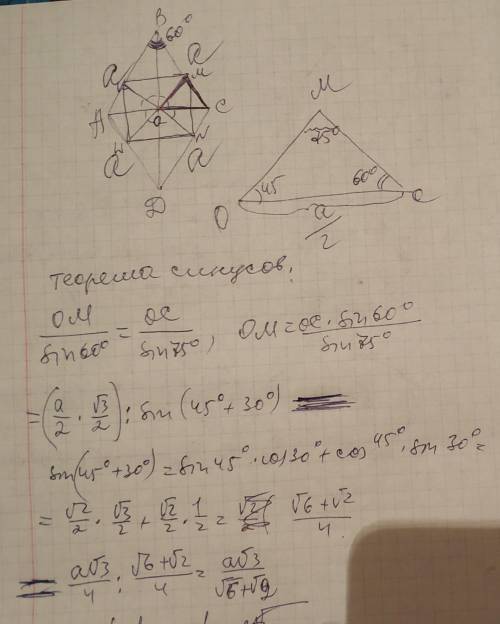 B
60°
a
a
M
A
O
C
a
a
N
D
M
75°
45
60°
O
C
a/2
теорема синусов.
OM/sin60° = OC/sin75°, OM = OC·sin60°/sin75°
= (a/2 · √3/2) : sin(45°+30°)
sin(45°+30°) = sin45°·cos30° + cos45°·sin30° =
= √2/2 · √3/2 + √2/2 · 1/2 = (√6+√2)/4
= a√3/4 : (√6+√2)/4 = a√3/(√6+√2)